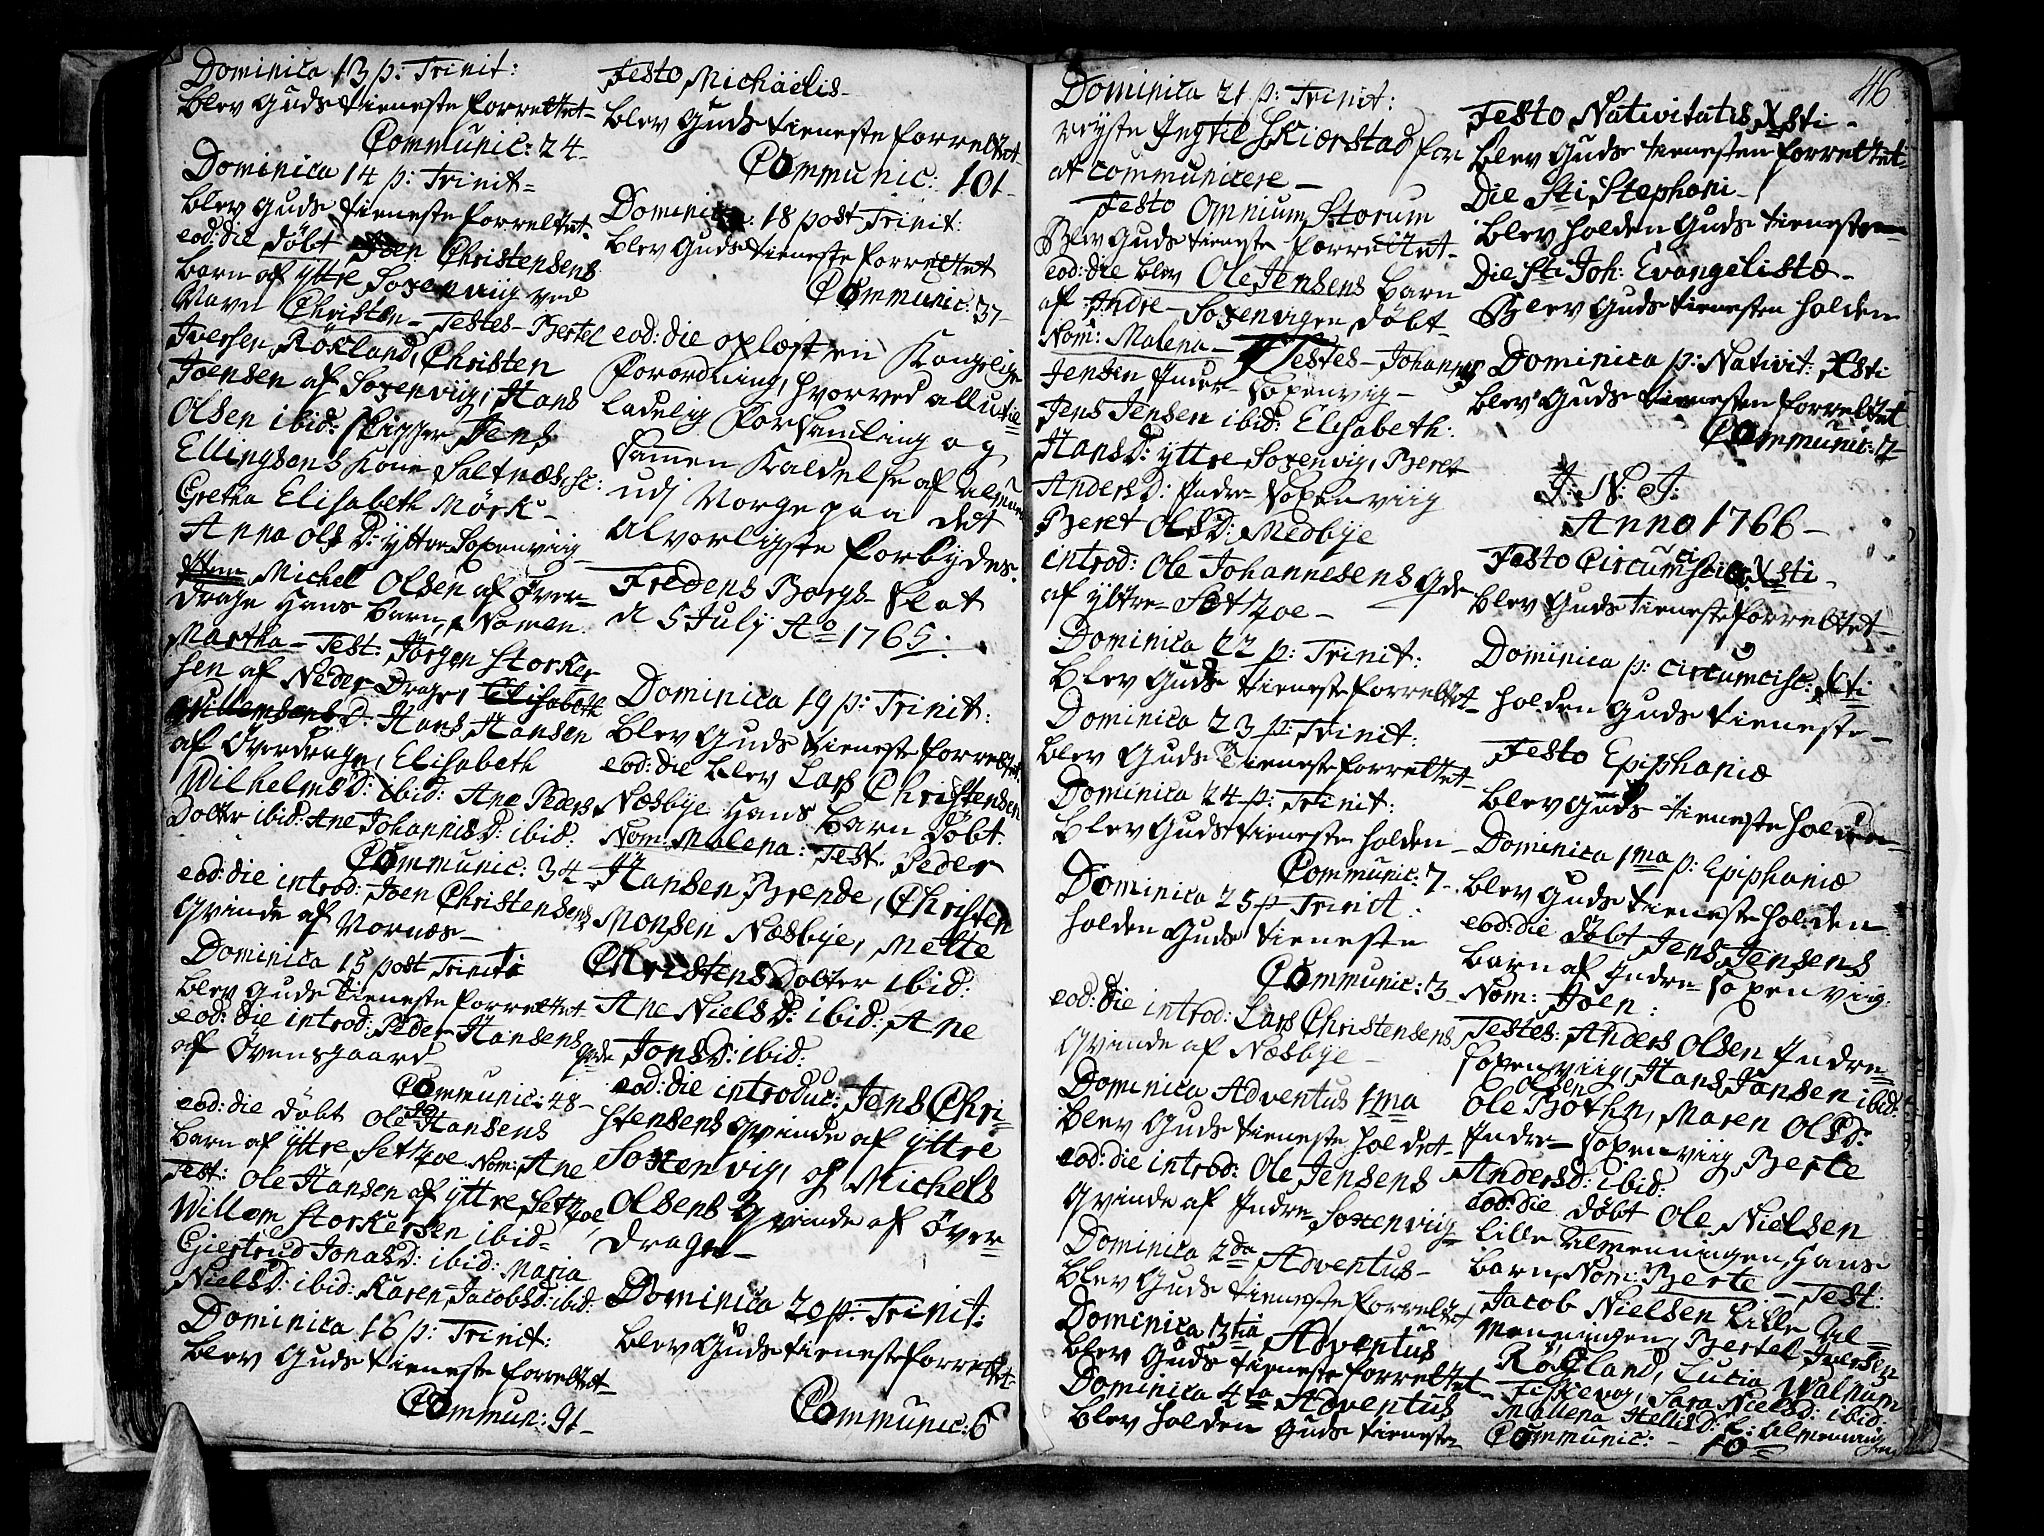 Dominica 13 p: Trinit:
blev Guds tieneste forrettet
Communic: 24
Dominica 14 p: Trinit
blev Guds tieneste forrettet.
eod: die döbt Joen Christensens
barn af yttre Soxenviig ved
Navn Christen Testes Bertel
Iversen Röxland, Christen
Joensen af Soxenviig, Hans
Olsen ibid: Jens
Ellingsens Kone Saltnæs
Gretha Elisabeth Mörk
Anna Ols D: yttre Soxenviig
Item Michel Olsen af Över
Drage Hans barn, Nomen
Martha Test: Jörgen Storker
sen af Neder Drage, Elisabeth
Willemsens D: Hans Hansen
af Överdrage, Elisabeth
Wilhelms D: ibid: Ane Peders
Dotter ibid: Ane Johannis D: ibid:
Communic: 34
eod: die introd: Joen Christensens
Qvinde af Vornæs
Dominica 15 post Triniti
blev Guds tieneste forrettet
eod: die introd: Peder Hansens Qde
af Övensgaard
Communic: 48
eod: die döbt Ole Hansens
barn af yttre Setzoe Nom: Ane
Test: Ole Hansen af yttre Setzoe
Willom Storkersen ibid
Giertrud Jonas D: ibid: Maria
Niels D: ibid: Karen Jacobs D: ibid:
Dominica 16 p: Trinit:
blev Guds tieneste forrettet
Commun: 91
Festo Michaelis
blev Guds tieneste forrettet
Communic: 101
Dominica: 18 post Trinit:
blev Guds tieneste forrettet
Communic: 37
eod: die oplæst en Kongelig
Forordning, hvorved all util
ladelig Forsamling og
Sammen Kaldelse af Almuen
udj Norge paa det
alvorligste forbydes.
Fredens Borgs Slot
d 5 July Ao 1765:
Dominica 19 p: Trinit:
blev Guds tieneste forrettet
eod: die blev Lars Christensen
Næsbye Hans barn döbt.
Nom: Malena: Test: Peder
Hansen Brende, Christen
Monsen Næsbye, Mette
Christens Dotter ibid:
Ane Niels D: ibid: Ane
Jons D: ibid:
eod: die introduc: Jens Chri-
stensens Qvinde af yttre
Soxenvig, og Michels
Olsens Qvinde af Över-
Drage
Dominica 20 p: Trinit:
blev Guds tieneste forrettet
Communic: 6
46
Dominica 21 p: Trinit:
reyste Ingel Skiærstad for
at communicere
Festo Omnium Storum
Blev Guds tieneste forrettet
eod: die blev Ole Jensens barn
af Indre Soxenvigen döbt
Nom: Malena Testes Johannes
Jensen Inder Soxenvig
Jens Jensen ibid: Elisabeth:
Hans D: yttre Soxenvig, Beret
Anders D: Indre Soxenviig
Beret Ols D: Medbye
introd: Ole Johannesens Qde
af yttre Setzoe
Dominica 22 p: Trinit:
blev Guds tieneste forrettet
Dominica 23 p: Trinit:
blev Guds Tieneste forrettet
Dominica 24 p: Trinit:
blev Guds tieneste holden
Communic: 7
Dominica 25 p Trinit:
holden Guds tieneste
Communic: 3
eod: die introd: Lars Christensens
Qvinde af Næsbye
Dominica Adventus 1ma
blev Guds tieneste holdet
eod: die introd: Ole Jensens
Qvinde af Indre Soxenviig
Dominica 2da Adventus
blev Guds tieneste forrettet
Dominica 3tia Adventus
blev Guds tieneste forrettet
Dominica 4ta Adventus
blev holden Guds tieneste
Festo Nativitatis Xsti
blev Guds tienesten forrettet
Die Sti Stephani
blev holden Guds tienesten
Die Sti Joh: Evangelistæ
Blev Guds tienesten holden
Dominica p: Nativit: Xsti
blev Guds tienesten forrettet
Communic: 7
J: N: J:
Anno 1766
Festo Circumcisio: Xsti
blev Guds tieneste forrettet
Dominica p: circumcis: Xti
holden Guds tieneste
Festo Epiphaniæ
blev Guds tieneste holden
Dominica 1ma p: Epiphaniæ
blev Guds tieneste holden
eod: die döbt Jens Jensens
barn af Indre Soxenviig.
Nom: Joen:
Testes: Anders Olsen Indre
Soxenviig, Hans Jansen ibid:
Olsen
Ole Bothn, Maren Ols D:
Indre Soxenviig Berte
Anders D: ibid:
eod: die döbt Ole Nielsen
Lille Almenningen, Hans
barn, Nom: Berte Test:
Jacob Nielsen Lille Al-
menningen, Bertel Iversen
Röxland, Lucia Walnum
Sara Niels D: ibid:
Mallena Hellis D: L: Almenning
Communic: 10